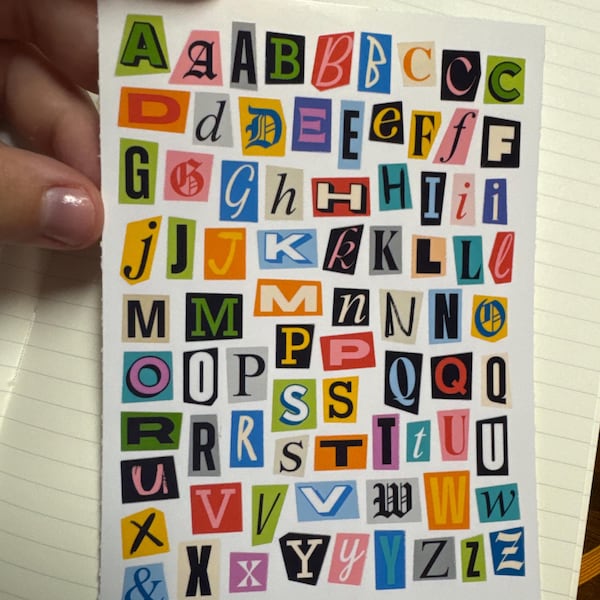 A A A B B B C C C
D d D E E e F f F
G G G h H H I i i
j J J K k K L L l
M M M n N N O
O O P P P Q Q Q
R R R S S S T T t U U
U V V V W W w
X X x Y y Y Z Z Z
&